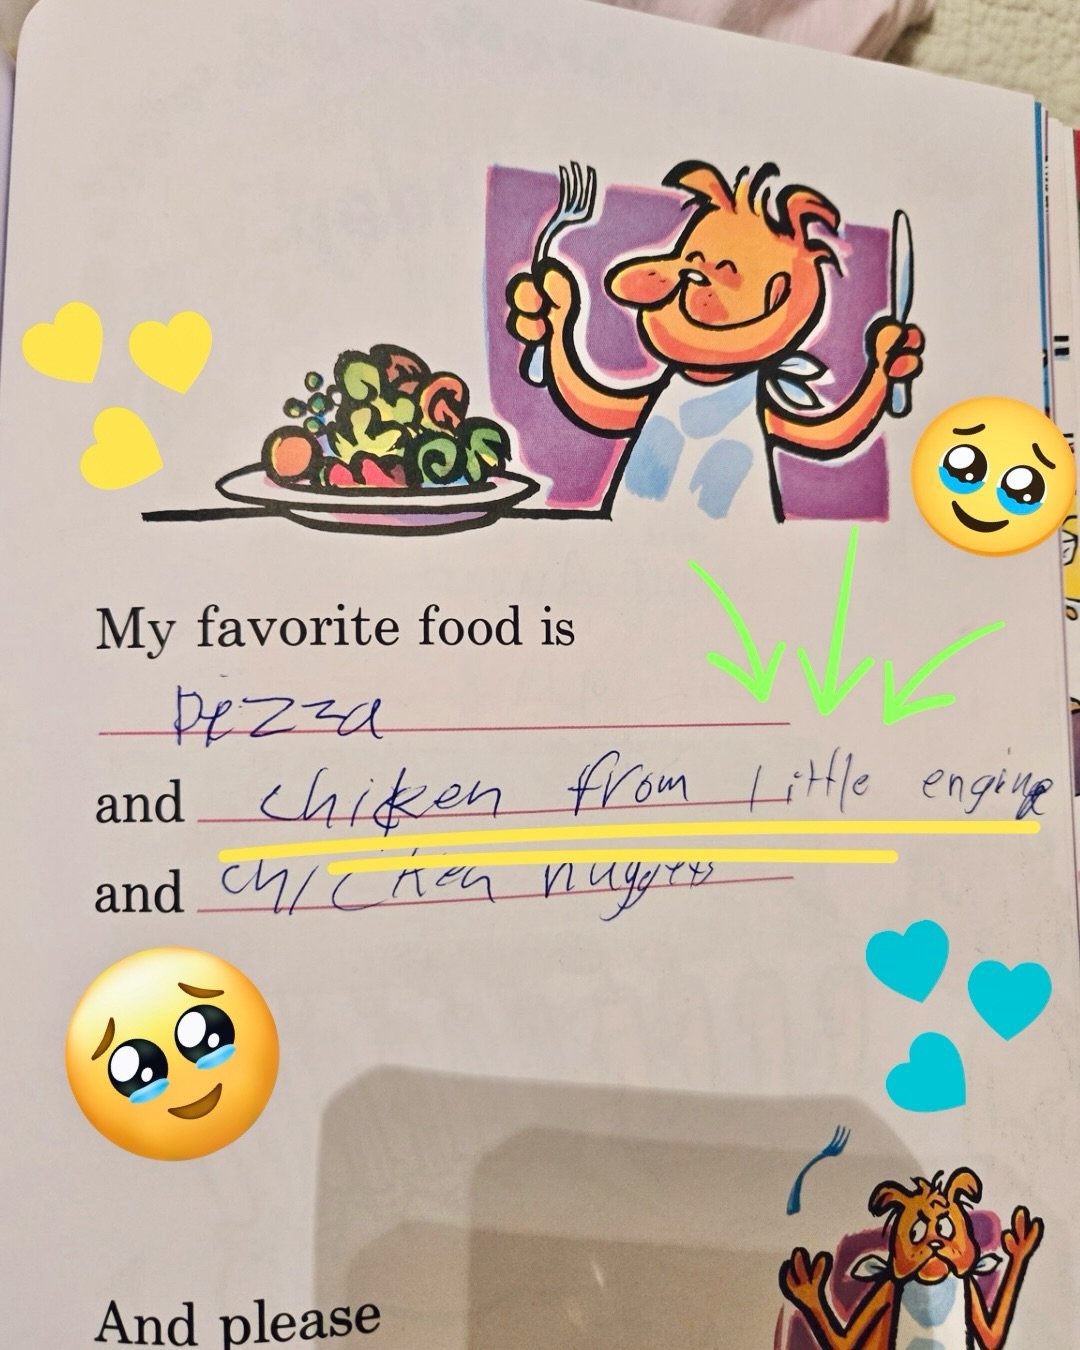 My favorite food is
pezza
and chicken from little engine
and chicken nuggets
And please